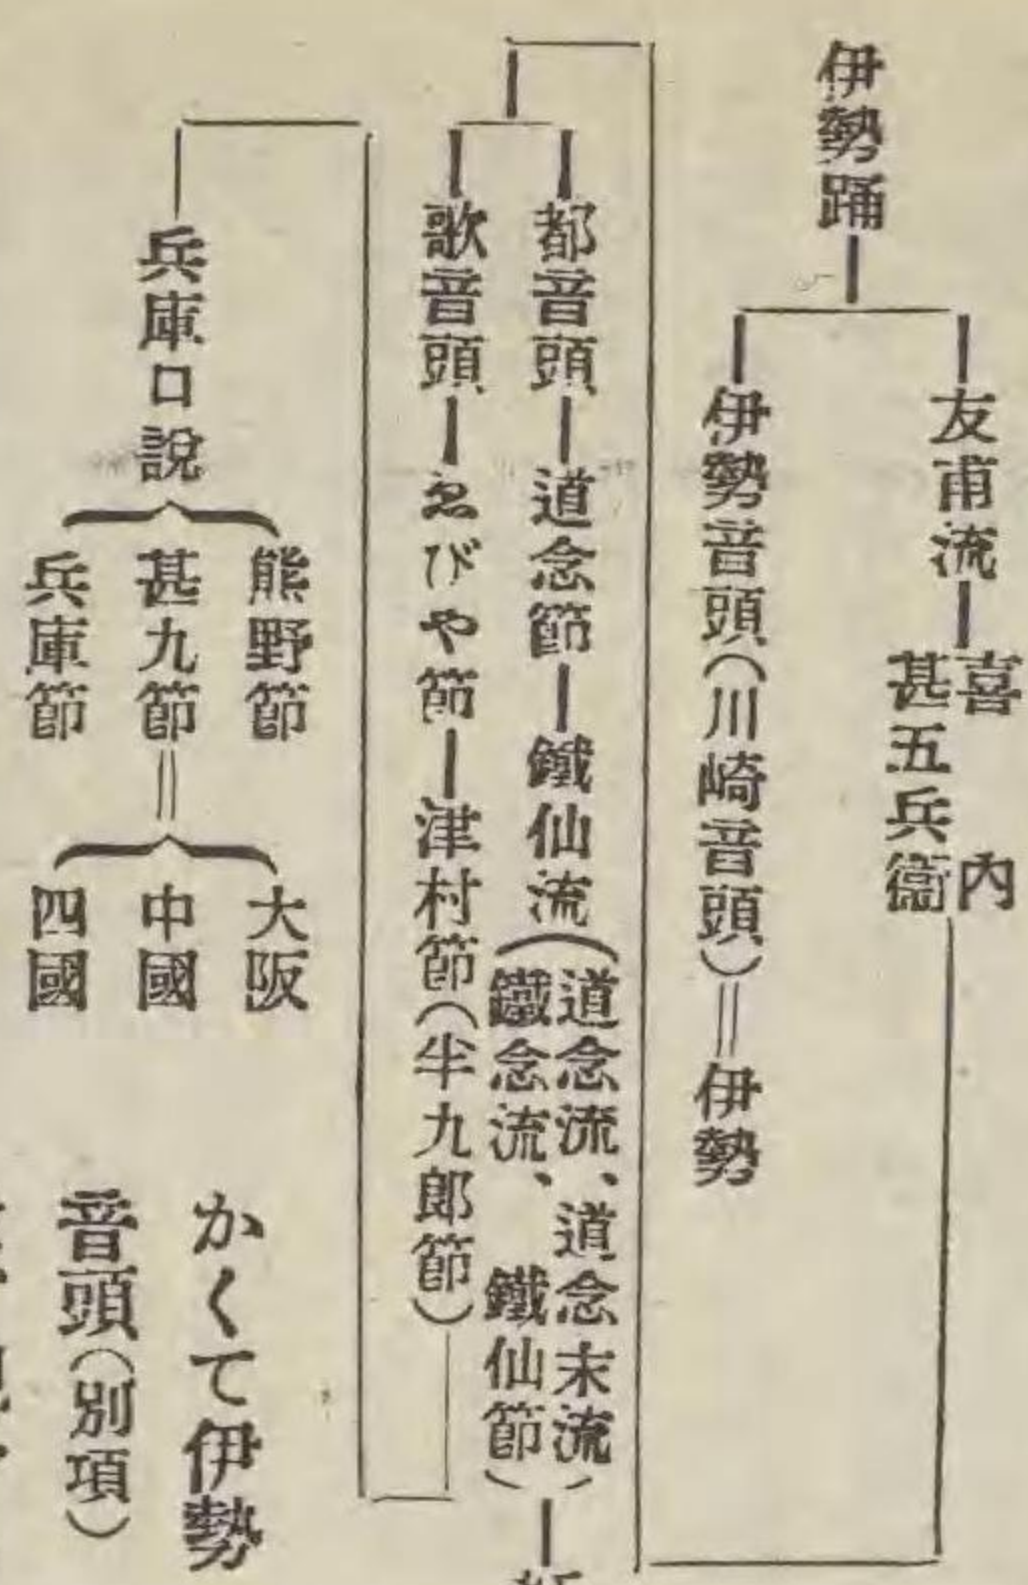 伊勢踊
友甫流
喜内
甚五兵衞
伊勢音頭(川崎音頭)＝伊勢
都音頭―道念節―鐵仙流(道念流、道念末流
鐵念流、鐵仙節)
歌音頭―ゑびや節―津村節(半九郎節)
兵庫口說
熊野節
甚九節
兵庫節
大阪
中國
四國
かくて伊勢
音頭(別項)